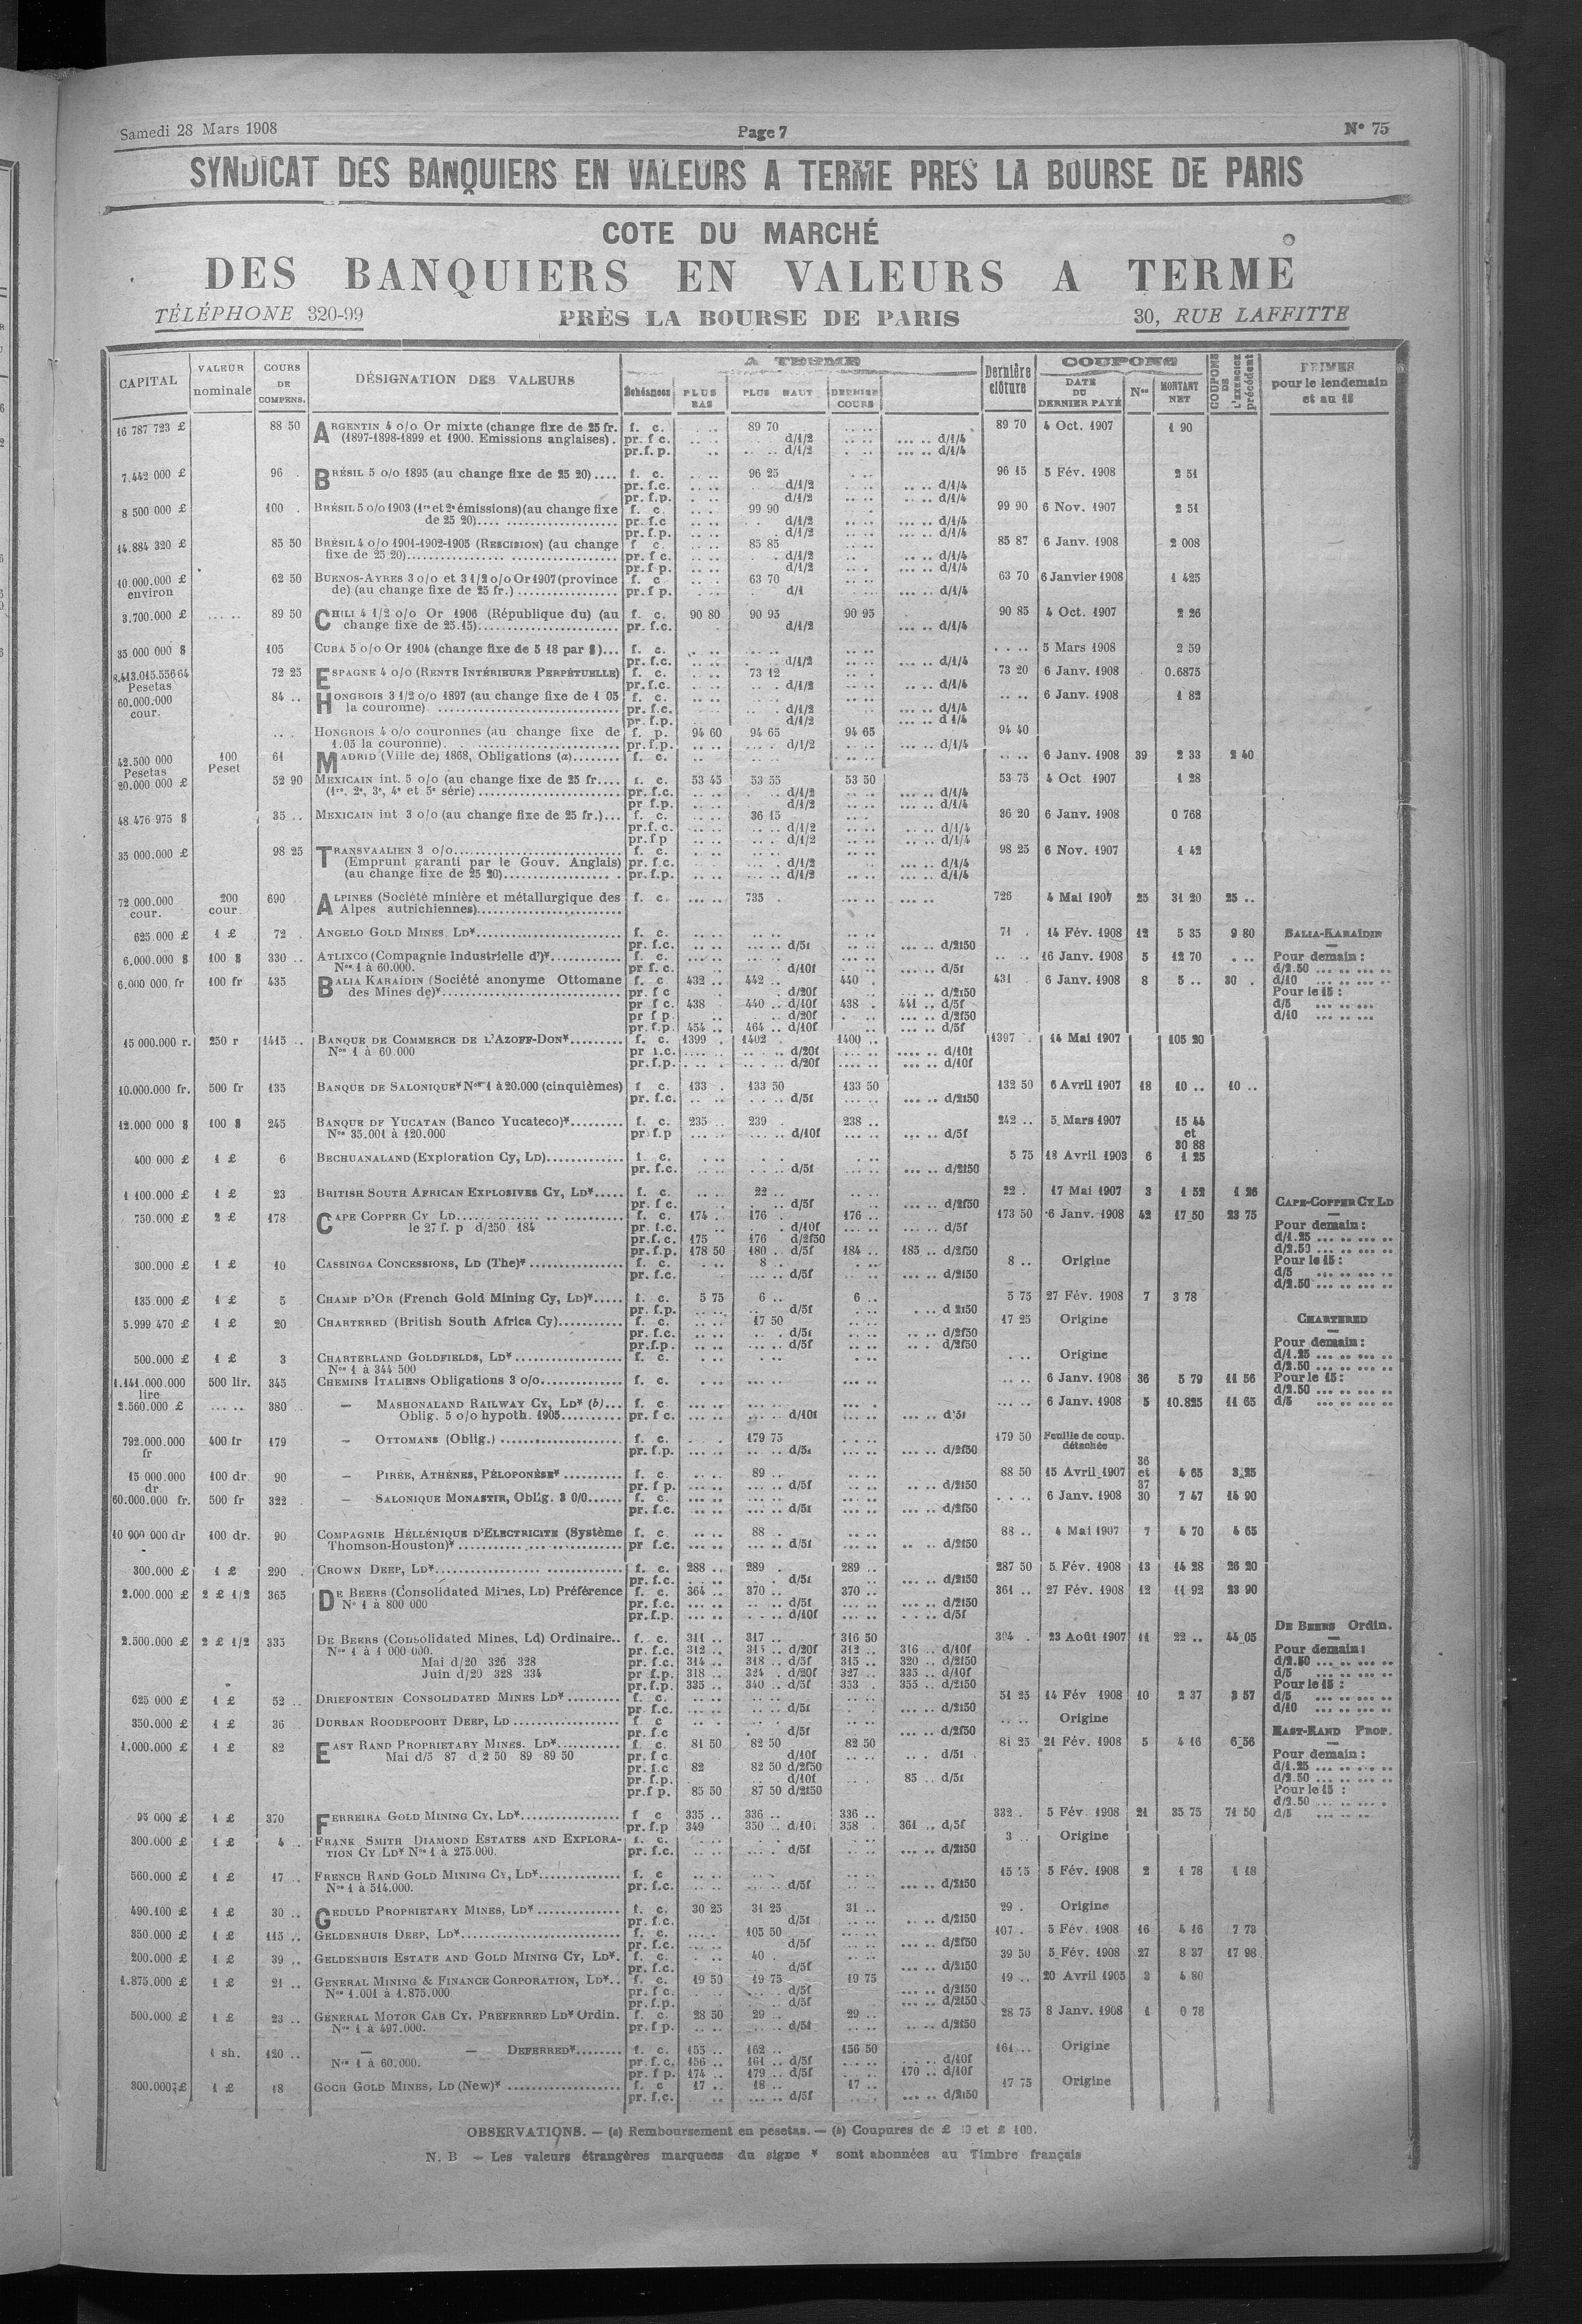 Samedi 28 Mars 1908 Page 7 N° 75
SYNDICAT DES BANQUIERS EN VALEURS A TERME PRES LA BOURSE DE PARIS
COTE DU MARCHÉ
DES BANQUIERS EN VALEURS A TERME
TÉLÉPHONE 320-99 PRÈS LA BOURSE DE PARIS 30, RUE LAFFITTE
CAPITAL VALEUR nominale COURS DE COMPENS. DÉSIGNATION DES VALEURS A TERME Échéances PLUS BAS PLUS HAUT DERNIER COURS Dernière clôture COUPONS DATE DU DERNIER PAYÉ Nos MONTANT NET COUPONS DE L'EXERCICE précédent PRIMES pour le lendemain et au 15
16 787 723 £ 88 50 ARGENTIN 4 o/o Or mixte (change fixe de 25 fr. f. c. 89 70 89 70 4 Oct. 1907 1 90
(1897-1898-1899 et 1900. Emissions anglaises). pr. f c. d/1/2 d/1/4
pr.f. p. d/1/2 d/1/4
7.442 000 £ 96 BRÉSIL 5 o/o 1895 (au change fixe de 25 20).... f. c. 96 25 96 15 5 Fév. 1908 2 51
pr. f.c. d/1/2 d/1/4
pr. f.p. d/1/2 d/1/4
8 500 000 £ 100 BRÉSIL 5 o/o 1903 (1re et 2e émissions) (au change fixe f. c. 99 90 99 90 6 Nov. 1907 2 51
de 25 20) pr. f.c d/1/2 d/1/4
pr. f.p. d/1/2 d/1/4
14.884 320 £ 85 50 BRÉSIL 4 o/o 1901-1902-1905 (RESCISION) (au change f c. 85 85 85 87 6 Janv. 1908 2 008
fixe de 25 20) pr. f c. d/1/2 d/1/4
pr. f.p. d/1/2 d/1/4
10.000.000 £ 62 50 BUENOS-AYRES 3 o/o et 3 1/2 o/o Or 1907 (province f. c 63 70 63 70 6 Janvier 1908 1 425
environ de) (au change fixe de 25 fr.) pr. f p. d/1 d/1/4
3.700.000 £ 89 50 CHILI 4 1/2 o/o Or 1906 (République du) (au f. c. 90 80 90 95 90 95 90 85 4 Oct. 1907 2 26
change fixe de 25.15) pr. f.c. d/1/2 d/1/4
35.000 000 $ 105 CUBA 5 o/o Or 1904 (change fixe de 5 18 par $)... f. c. 5 Mars 1908 2 59
pr. f.c. d/1/2 d/1/4
8.413.015.556 64 72 25 ESPAGNE 4 o/o (RENTE INTÉRIEURE PERPÉTUELLE) f. c. 73 12 73 20 6 Janv. 1908 0.6875
Pesetas pr.f.c. d/1/2 d/1/4
60.000.000 84 .. HONGROIS 3 1/2 o/o 1897 (au change fixe de 1 05 f. c. 6 Janv. 1908 1 82
cour. la couronne) pr. f.c. d/1/2 d/1/4
pr. f.p. d/1/2 d 1/4
HONGROIS 4 o/o couronnes (au change fixe de f. p. 94 60 94 65 94 65 94 40
1.05 la couronne) pr. f.p. d/1/2 d/1/4
42.500 000 100 61 MADRID (Ville de) 1868, Obligations (a) f. c. 6 Janv. 1908 39 2 33 2 40
Pesetas Peset
20.000 000 £ 52 90 MEXICAIN int. 5 o/o (au change fixe de 25 fr.... f. c. 53 45 53 55 53 50 53 75 4 Oct 1907 1 28
(1re, 2e, 3e, 4e et 5e série) pr. f.c. d/1/2 d/1/4
pr f.p. d/1/2 d/1/4
48 476 975 $ 35 .. MEXICAIN int 3 o/o (au change fixe de 25 fr.)... f. c. 36 15 36 20 6 Janv. 1908 0 768
pr.f. c. d/1/2 d/1/4
pr.f p d/1/2 d/1/4
35 000.000 £ 98 25 TRANSVAALIEN 3 o/o f. c. 98 25 6 Nov. 1907 1 42
(Emprunt garanti par le Gouv. Anglais) pr. f.c. d/1/2 d/1/4
(au change fixe de 25 20) pr. f.p. d/1/2 d/1/4
72 000.000 200 690 ALPINES (Société minière et métallurgique des f. c. 735 726 4 Mai 1907 25 31 20 25 ..
cour. cour. Alpes autrichiennes)
625.000 £ 1 £ 72 ANGELO GOLD MINES, LD* f. c. 71 14 Fév. 1908 12 5 35 9 80 BALIA-KARAÏDIN
pr. f.c. d/5f d/2f50
6.000.000 $ 100 $ 330 .. ATLIXCO (Compagnie Industrielle d')* f. c. 16 Janv. 1908 5 12 70 Pour demain :
Nos 1 à 60.000. pr f. c. d/10f d/5f d/2.50
6.000 000 fr 100 fr 435 BALIA KARAÏDIN (Société anonyme Ottomane f. c 432 .. 442 .. 440 . 431 6 Janv. 1908 8 5 .. 30 . d/10
des Mines de)* pr. f c d/20f d/2f50 Pour le 15 :
pr f c. 438 440 .. d/10f 438 . 441 .. d/5f d/5
pr f p. d/20f d/2f50 d/10
pr. f.p. 454 .. 464 .. d/10f d/5f
15 000.000 r. 250 r 1415 .. BANQUE DE COMMERCE DE L'AZOFF-DON* f. c. 1399 . 1402 . 1400 .. 1397 . 14 Mai 1907 105 20
Nos 1 à 60.000 pr f.c. d/20f d/10f
pr.f.p. d/20f d/10f
10.000.000 fr. 500 fr 135 BANQUE DE SALONIQUE* Nos 1 à 20.000 (cinquièmes) f c. 133 . 133 50 133 50 132 50 6 Avril 1907 18 10 .. 10 ..
pr. f.c. d/5f d/2f50
12.000 000 $ 100 $ 245 BANQUE DE YUCATAN (Banco Yucateco)* f. c. 235 .. 239 . 238 .. 242 .. 5 Mars 1907 15 44
Nos 35.001 à 120.000 pr f.p d/10f d/5f et
30 88
400 000 £ 1 £ 6 BECHUANALAND (Exploration Cy, LD) f. c. 5 75 18 Avril 1903 6 1 25
pr. f.c. d/5f d/2f50
1 100.000 £ 1 £ 23 BRITISH SOUTH AFRICAN EXPLOSIVES CY, LD* f. c. 22 .. 22 . 17 Mai 1907 3 1 52 1 26
pr. f c. d/5f d/2f50 CAPE-COPPER CY LD
750.000 £ 2 £ 178 CAPE COPPER CY LD f. c. 174 . 176 . 176 .. 173 50 6 Janv. 1908 42 17 50 23 75
le 27 f. p d/250 184 pr. f.c. d/10f d/5f Pour demain :
pr.f. c. 175 176 d/2f50 d/1.25
pr. f.p. 178 50 180 .. d/5f 184 .. 185 .. d/2f50 d/2.50
300.000 £ 1 £ 10 CASSINGA CONCESSIONS, LD (The)* f. c. 8 .. 8 .. Origine Pour le 15 :
pr. f.c. d/5f d/2f50 d/5
d/2.50
135 000 £ 1 £ 5 CHAMP D'OR (French Gold Mining Cy, LD)* f. c. 5 75 6 .. 6 .. 5 75 27 Fév. 1908 7 3 78
pr. f.p. d/5f d 2f50
5.999 470 £ 1 £ 20 CHARTERED (British South Africa Cy) f. c. 17 50 17 25 Origine CHARTERED
pr. f.c. d/5f d/2f50
pr.f.p. d/5f d/2f50 Pour demain :
500.000 £ 1 £ 3 CHARTERLAND GOLDFIELDS, LD* f. c. Origine d/1.25
Nos 1 à 344 500 d/2.50
1.141.000.000 500 lir. 345 CHEMINS ITALIENS Obligations 3 o/o f. c. 6 Janv. 1908 36 5 79 11 56 Pour le 15 :
lire d/2.50
2.560.000 £ 380 — MASHONALAND RAILWAY CY, LD* (b) f. c 6 Janv. 1908 5 10.825 11 65 d/5
Oblig. 5 o/o hypoth. 1905 pr. f c. d/10f d 5f
792.000.000 400 fr 179 — OTTOMANS (Oblig.) f. c. 179 75 179 50 Feuille de coup.
fr pr. f.p. d/5f d/2f50 détachée
15 000.000 100 dr. 90 — PIRÉE, ATHÈNES, PÉLOPONÈSE* f. c. 89 .. 88 50 15 Avril 1907 36 et 37 4 65 3,25
dr pr. f p. d/5f d/2f50
60.000.000 fr. 500 fr 322 — SALONIQUE MONASTIR, Oblig. 3 0/0 f. c. 6 Janv. 1908 30 7 47 14 90
pr. f.c. d/5f d/2f50
10 000 000 dr 100 dr. 90 COMPAGNIE HÉLLÉNIQUE D'ELECTRICITE (Système f. c. 88 .. 88 .. 4 Mai 1907 7 4 70 4 65
Thomson-Houston)* pr f.c. d/5f d/2f50
300.000 £ 1 £ 290 CROWN DEEP, LD* f. c. 288 .. 289 . 289 .. 287 50 5 Fév. 1908 13 14 28 26 20
pr. f.c. d/5f d/2f50
2.000.000 £ 2 £ 1/2 365 DE BEERS (Consolidated Mines, LD) Préférence f. c. 364 .. 370 .. 370 .. 361 .. 27 Fév. 1908 12 11 92 23 90
N° 1 à 800 000 pr. f.c. d/5f d/2f50
pr.f.p. d/10f d/5f
DE BEERS Ordin.
2.500.000 £ 2 £ 1/2 335 DE BEERS (Consolidated Mines, Ld) Ordinaire.. f. c. 311 .. 317 .. 316 50 304 . 23 Août 1907 11 22 .. 44 05
Nos 1 à 1 000 000. pr. f.c. 312 .. 315 .. d/20f 312 .. 316 .. d/10f Pour demain :
Mai d/20 326 328 pr. f.c. 314 .. 318 .. d/5f 315 .. 320 .. d/2f50 d/2.50
Juin d/20 328 334 pr f.p. 318 .. 324 . d/20f 327 .. 335 .. d/10f d/5
pr. f.p. 335 .. 340 .. d/5f 353 . 355 .. d/2f50 Pour le 15 :
625 000 £ 1 £ 52 .. DRIEFONTEIN CONSOLIDATED MINES LD* f. c. 51 25 14 Fév 1908 10 2 37 3 57 d/5
pr. f.c. d/5f d/2f50 d/10
350.000 £ 1 £ 36 DURBAN ROODEPOORT DEEP, LD f. c Origine
pr. f.c d/5f d/2f50 EAST-RAND PROP.
1.000.000 £ 1 £ 82 EAST RAND PROPRIETARY MINES. LD* f. c. 81 50 82 50 82 50 81 25 21 Fév. 1908 5 4 16 6 56
Mai d/5 87 d 2 50 89 89 50 pr. f c d/10f d/5f Pour demain :
pr. f.c 82 82 50 d/2f50 d/1.25
pr. f.p. d/10f 85 .. d/5f d/2.50
pr.f p. 85 50 87 50 d/2f50 Pour le 15 :
d/2.50
95 000 £ 1 £ 370 FERREIRA GOLD MINING CY, LD* f c 335 .. 336 .. 336 .. 332 . 5 Fév. 1908 21 35 75 71 50 d/5
pr. f.p 349 350 .. d/10f 358 . 361 .. d/5f
300.000 £ 1 £ 4 .. FRANK SMITH DIAMOND ESTATES AND EXPLORA- f. c. 3 .. Origine
TION CY LD* Nos 1 à 275.000. pr. f.c. d/5f d/2f50
560.000 £ 1 £ 17 .. FRENCH RAND GOLD MINING CY, LD* f. c 5 Fév. 1908 2 1 78 1 18
Nos 1 à 514.000. pr. f.c. d/5f d/2f50
490.100 £ 1 £ 30 .. GEDULD PROPRIETARY MINES, LD* f. c. 30 25 31 25 31 .. 29 . Origine
pr. f.c. d/5f d/2f50
350.000 £ 1 £ 115 .. GELDENHUIS DEEP, LD* f. c. 105 50 107 . 5 Fév. 1908 16 4 16 7 73
pr. f.c. d/5f d/2f50
200.000 £ 1 £ 39 .. GELDENHUIS ESTATE AND GOLD MINING CY, LD*. f. c. 40 . 39 50 5 Fév. 1908 27 8 37 17 98
pr. f.c. d/5f d/2f50
1.875.000 £ 1 £ 21 .. GENERAL MINING & FINANCE CORPORATION, LD*.. f. c. 19 50 19 75 19 75 19 .. 20 Avril 1905 3 4 80
Nos 1.001 à 1.875.000 pr. f c. d/5f d/2f50
pr. f.p. d/5f d/2f50
500.000 £ 1 £ 23 .. GENERAL MOTOR CAB CY, PREFERRED LD* Ordin. f. c. 28 50 29 .. 29 .. 28 75 8 Janv. 1908 1 0 78
Nos 1 à 497.000. pr. f p. d/5f d/2f50
1 sh. 120 .. — — DEFERRED* f. c. 155 .. 162 .. 156 50 161 .. Origine
Nos 1 à 60.000. pr. f. c. 156 .. 161 .. d/5f d/10f
pr. f p. 174 .. 179 .. d/5f 170 .. d/10f
300.000 £ 1 £ 18 GOCH GOLD MINES, LD (New)* f. c 17 .. 18 .. 17 .. 17 75 Origine
pr. f.c. d/5f d/2f50
OBSERVATIONS. — (a) Remboursement en pesetas. — (b) Coupures de £ et £ 100.
N. B — Les valeurs étrangères marquees du signe * sont abonnées au Timbre français